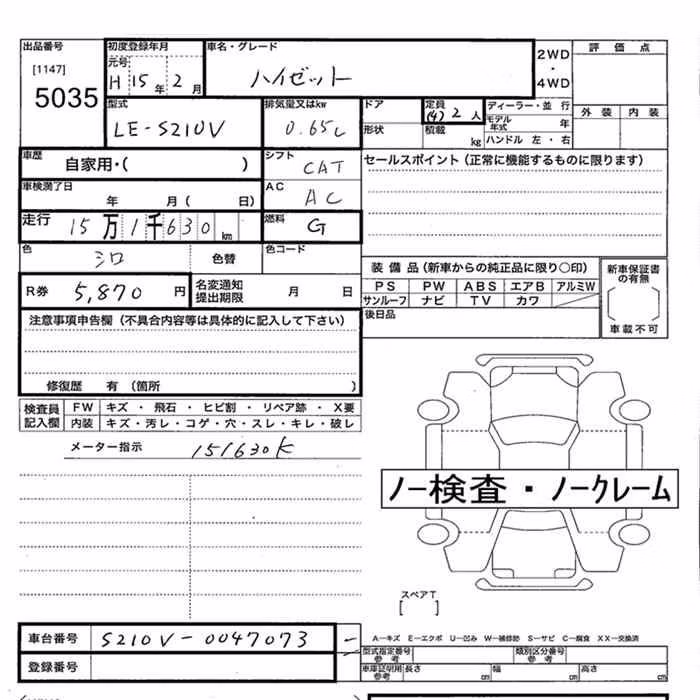 出品番号
[1147]
5035
初度登録年月
元号
H 15 年 2 月
車名・グレード
ハイゼット
2WD
・
4WD
評 価 点
外 装 内 装
型式
LE-S210V
排気量又はkw
0.65L
ドア
形状
定員
(4) 2 人
積載
kg
ディーラー・並 行
モデル年式 年
ハンドル 左・右
車歴
自家用・( )
シフト
CAT
セールスポイント (正常に機能するものに限ります)
車検満了日
年 月( 日)
AC
AC
走行
15万1千630km
燃料
G
色
シロ
色替
色コード
R券 5,870 円
名変通知
提出期限
月 日
装 備 品 (新車からの純正品に限り〇印)
PS PW ABS エアB アルミW
サンルーフ ナビ TV カワ
後日品
新車保証書
の有無
車載不可
注意事項申告欄 (不具合内容等は具体的に記入して下さい)
修復歴 有 (箇所 )
検査員
記入欄
FW キズ ・ 飛石 ・ ヒビ割 ・ リペア跡 ・ X要
内装 キズ・汚レ・コゲ・穴・スレ・キレ・破レ
メーター指示 151630K
ノー検査・ノークレーム
スペアT
[ ]
車台番号 S210V-0047073
登録番号
A―キズ E―エクボ U―凹み W―補修跡 S―サビ C―腐食 XX―交換済
型式指定番号
参 考
類別区分番号
参 考
車庫証明用
参 考
長さ cm 幅 cm 高さ cm